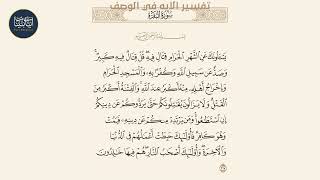 تفسير الآيه في الوصف
سُورَةُ البَقَرَةِ
بِسْمِ ٱللَّهِ ٱلرَّحْمَٰنِ ٱلرَّحِيمِ
يَسْـَٔلُونَكَ عَنِ ٱلشَّهْرِ ٱلْحَرَامِ قِتَالٍ فِيهِ ۖ قُلْ قِتَالٌ فِيهِ كَبِيرٌ ۖ
وَصَدٌّ عَن سَبِيلِ ٱللَّهِ وَكُفْرٌۢ بِهِۦ وَٱلْمَسْجِدِ ٱلْحَرَامِ
وَإِخْرَاجُ أَهْلِهِۦ مِنْهُ أَكْبَرُ عِندَ ٱللَّهِ ۚ وَٱلْفِتْنَةُ أَكْبَرُ مِنَ
ٱلْقَتْلِ ۗ وَلَا يَزَالُونَ يُقَٰتِلُونَكُمْ حَتَّىٰ يَرُدُّوكُمْ عَن دِينِكُمْ
إِنِ ٱسْتَطَٰعُوا۟ ۚ وَمَن يَرْتَدِدْ مِنكُمْ عَن دِينِهِۦ فَيَمُتْ
وَهُوَ كَافِرٌ فَأُو۟لَٰٓئِكَ حَبِطَتْ أَعْمَٰلُهُمْ فِى ٱلدُّنْيَا
وَٱلْـَٔاخِرَةِ ۖ وَأُو۟لَٰٓئِكَ أَصْحَٰبُ ٱلنَّارِ ۖ هُمْ فِيهَا خَٰلِدُونَ